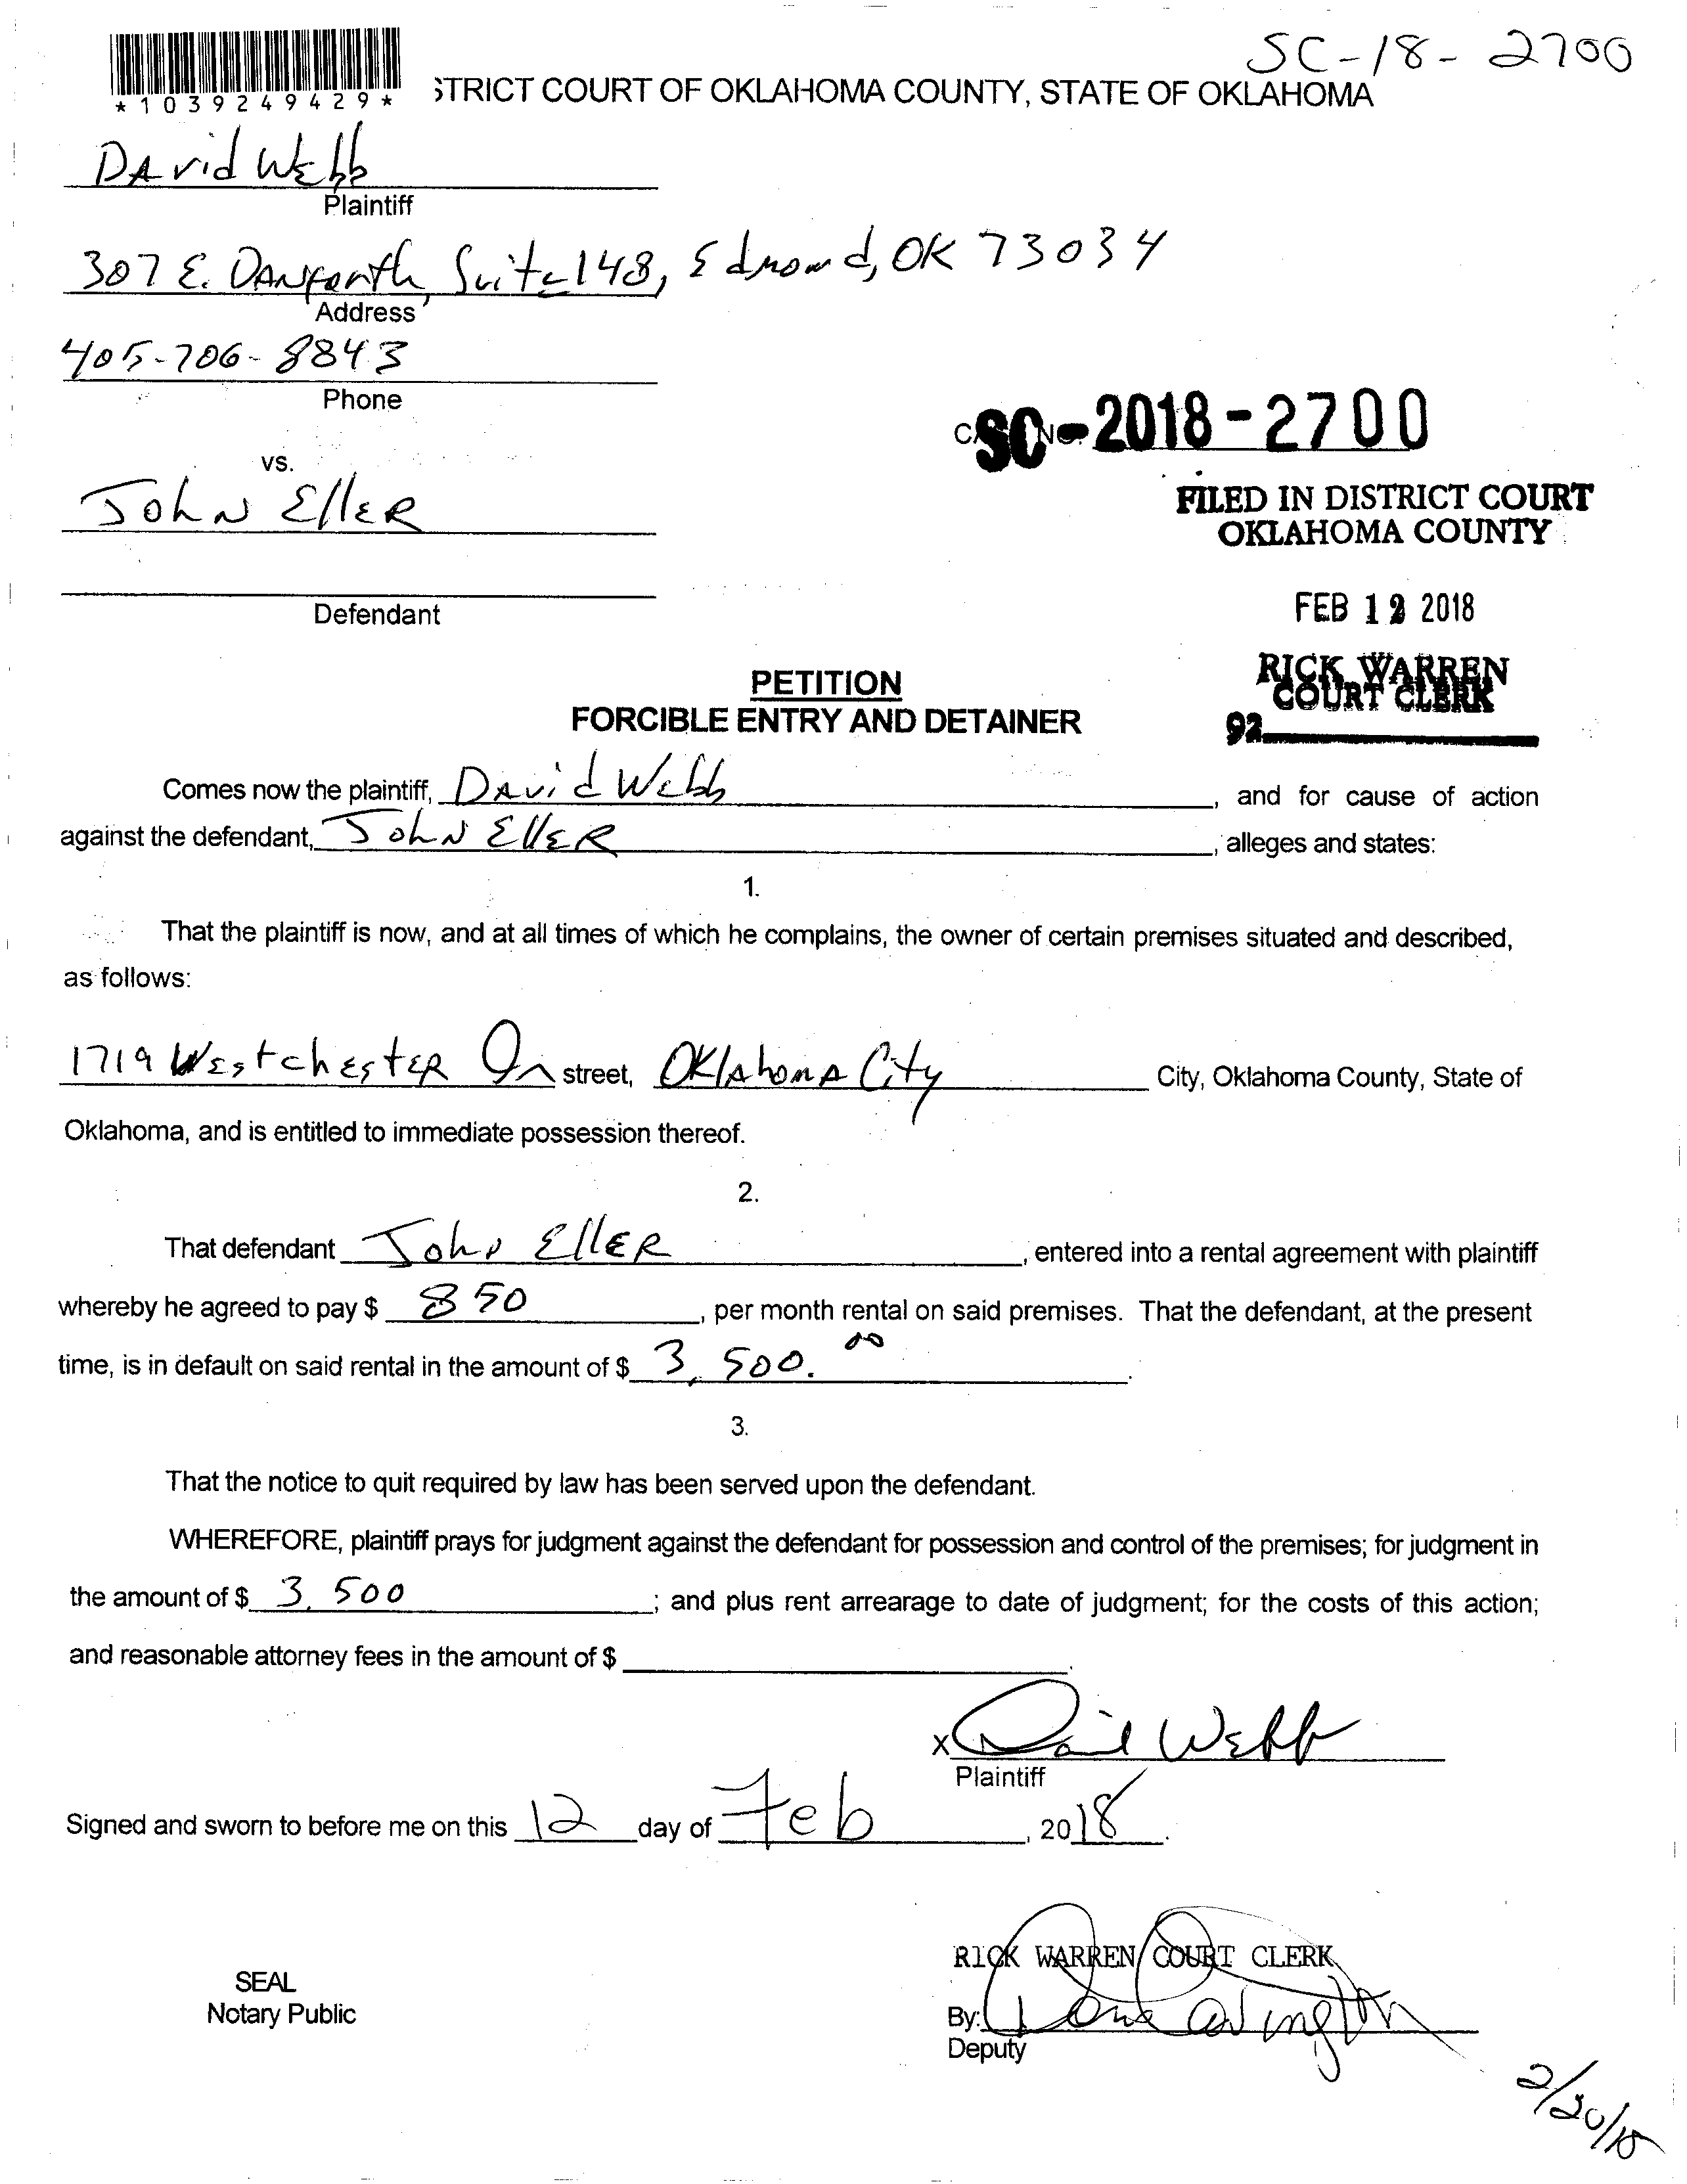 SC-18-2700
*1039249429*
STRICT COURT OF OKLAHOMA COUNTY, STATE OF OKLAHOMA
DAvid Webb
Plaintiff
307 E. DANforth, Suite 148, Edmond, OK 73034
Address
405-706-8843
Phone
SC-2018-2700
vs.
JohN EllER
FILED IN DISTRICT COURT
OKLAHOMA COUNTY
Defendant
FEB 12 2018
PETITION
RICK WARREN
COURT CLERK
FORCIBLE ENTRY AND DETAINER
92
Comes now the plaintiff, DAvid Webb, and for cause of action
against the defendant, JohN EllER, alleges and states:
1.
That the plaintiff is now, and at all times of which he complains, the owner of certain premises situated and described,
as follows:
1719 WestchestER Dr street, OKlAhomA City City, Oklahoma County, State of
Oklahoma, and is entitled to immediate possession thereof.
2.
That defendant John EllER, entered into a rental agreement with plaintiff
whereby he agreed to pay $ 850, per month rental on said premises. That the defendant, at the present
time, is in default on said rental in the amount of $ 3,500.00.
3.
That the notice to quit required by law has been served upon the defendant.
WHEREFORE, plaintiff prays for judgment against the defendant for possession and control of the premises; for judgment in
the amount of $ 3,500; and plus rent arrearage to date of judgment; for the costs of this action;
and reasonable attorney fees in the amount of $ .
X David Webb
Plaintiff
Signed and sworn to before me on this 12 day of Feb, 2018.
RICK WARREN COURT CLERK
SEAL
Notary Public
By:
Deputy